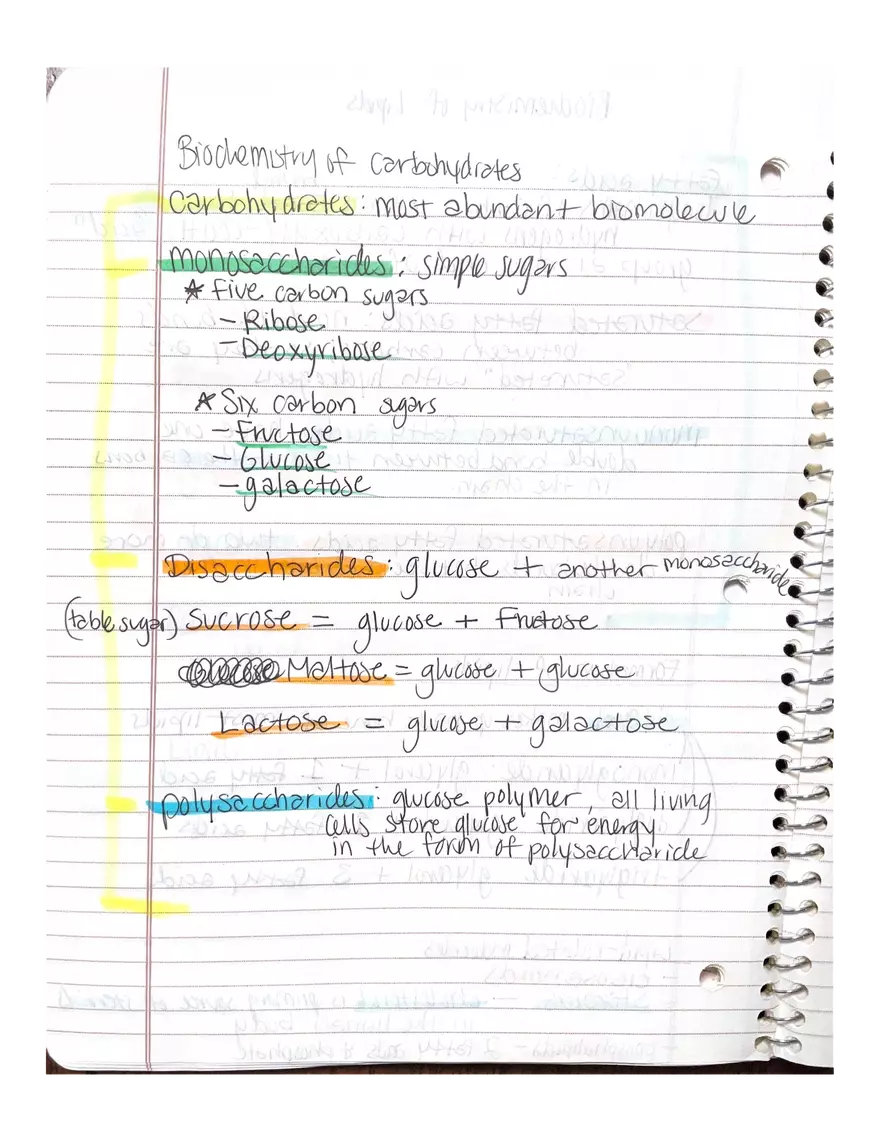 Biochemistry of Carbohydrates
Carbohydrates: most abundant biomolecule
monosaccharides: simple sugars
* Five carbon sugars
- Ribose
- Deoxyribose
* Six carbon sugars
- Fructose
- Glucose
- galactose
Disaccharides: glucose + another monosaccharide
(table sugar) Sucrose = glucose + Fructose
Maltose = glucose + glucose
Lactose = glucose + galactose
polysaccharides: glucose polymer, all living
cells store glucose for energy
in the form of polysaccharide